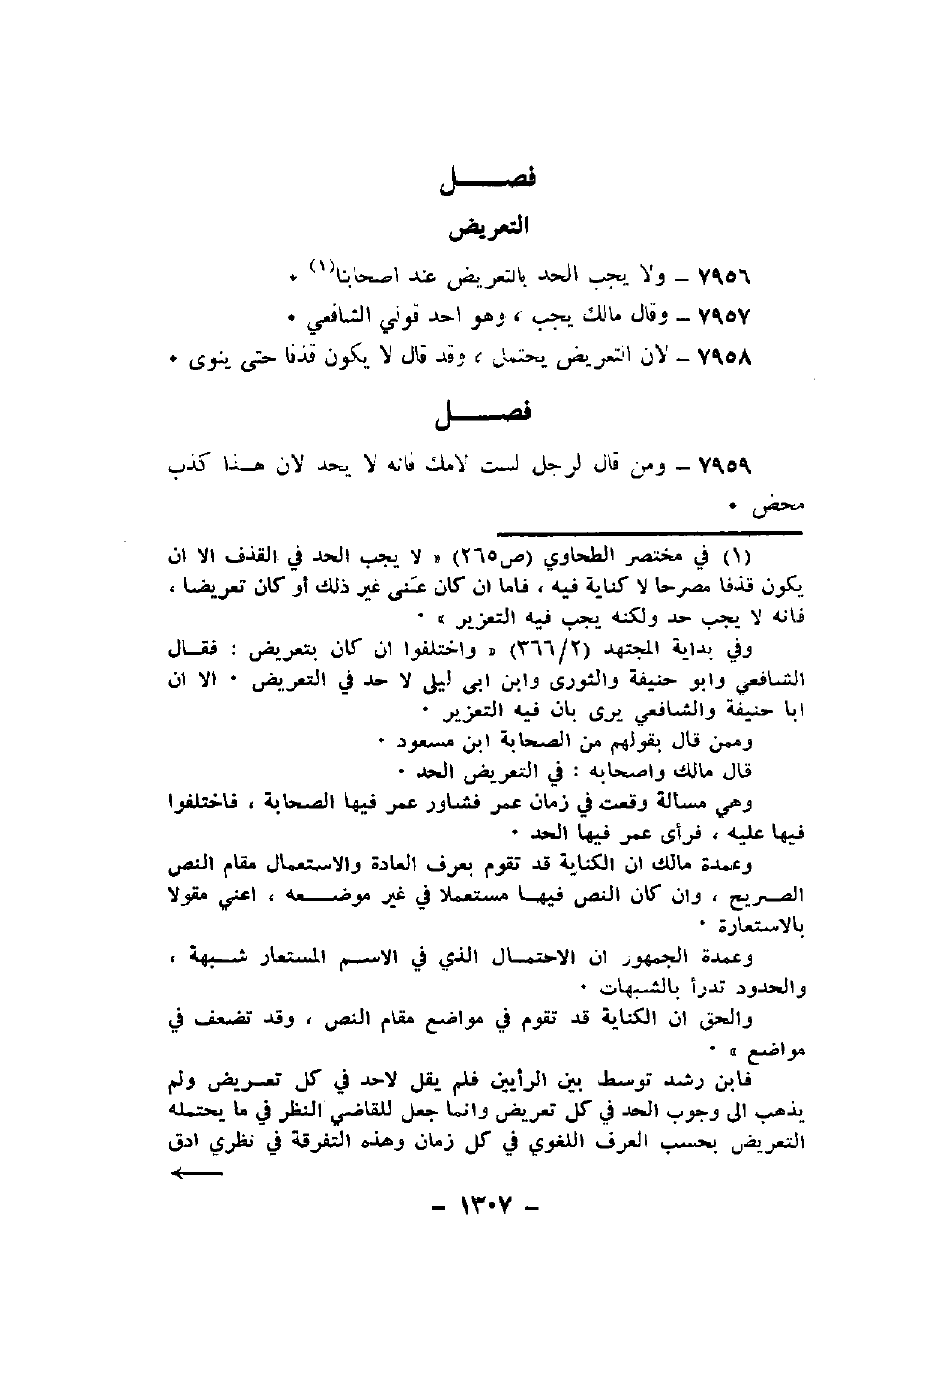 فصــــل
التعريض
٧٩٥٦ ــ ولا يجب الحد بالتعريض عند اصحابنا(١) ٠
٧٩٥٧ ــ وقال مالك يجب ، وهو احد قولي الشافعي ٠
٧٩٥٨ ــ لان التعريض يحتمل ، وقد قال لا يكون قذفا حتى ينوى ٠
فصــــل
٧٩٥٩ ــ ومن قال لرجل لست لامك فانه لا يحد لان هــذا كذب
محض ٠
(١) في مختصر الطحاوي (ص٢٦٥) « لا يجب الحد في القذف الا ان
يكون قذفا مصرحا لا كناية فيه ، فاما ان كان عنى غير ذلك أو كان تعريضا ،
فانه لا يجب حد ولكنه يجب فيه التعزير » ٠
وفي بداية المجتهد (٣٦٦/٢) « واختلفوا ان كان بتعريض : فقــال
الشافعي وابو حنيفة والثورى وابن ابى ليلى لا حد في التعريض ٠ الا ان
ابا حنيفة والشافعي يرى بان فيه التعزير ٠
وممن قال بقولهم من الصحابة ابن مسعود ٠
قال مالك واصحابه : في التعريض الحد ٠
وهي مسالة وقعت في زمان عمر فشاور عمر فيها الصحابة ، فاختلفوا
فيها عليه ، فرأى عمر فيها الحد ٠
وعمدة مالك ان الكناية قد تقوم بعرف العادة والاستعمال مقام النص
الصــريح ، وان كان النص فيهــا مستعملا في غير موضــعه ، اعني مقولا
بالاستعارة ٠
وعمدة الجمهور ان الاحتمــال الذي في الاســم المستعار شــبهة ،
والحدود تدرأ بالشبهات ٠
والحق ان الكناية قد تقوم في مواضع مقام النص ، وقد تضعف في
مواضع » ٠
فابن رشد توسط بين الرأيين فلم يقل لاحد في كل تعــريض ولم
يذهب الى وجوب الحد في كل تعريض وانما جعل للقاضي النظر في ما يحتمله
التعريض بحسب العرف اللغوي في كل زمان وهذه التفرقة في نظري ادق
ــ ١٣٠٧ ــ